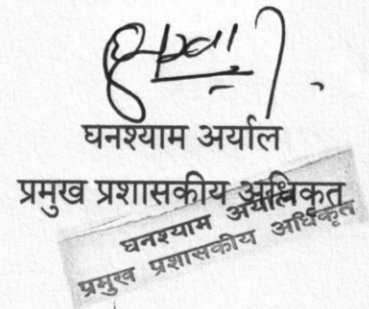 घनश्याम अर्याल
प्रमुख प्रशासकीय अधिकृत
घनश्याम अर्याल
प्रमुख प्रशासकीय अधिकृत